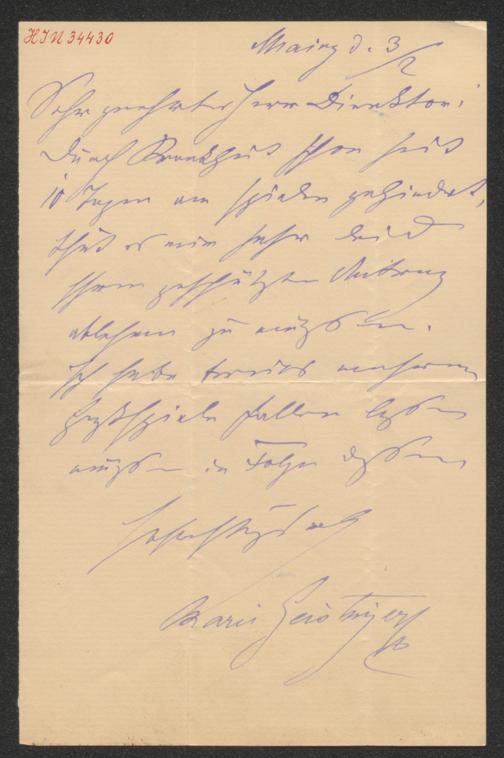 HIN 34430
Mainz d. 3/2
Sehr geehrter Herr Direktor!
Durch Krankheit schon seit
10 Tagen am spielen gehindert,
thut es mir sehr leid
Ihren geschätzten Antrag
ablehnen zu müssen.
Ich habe bereits mehrere
Gastspiele fallen lassen
müssen in Folge dessen
Hochachtungsvoll
Marie Geistinger